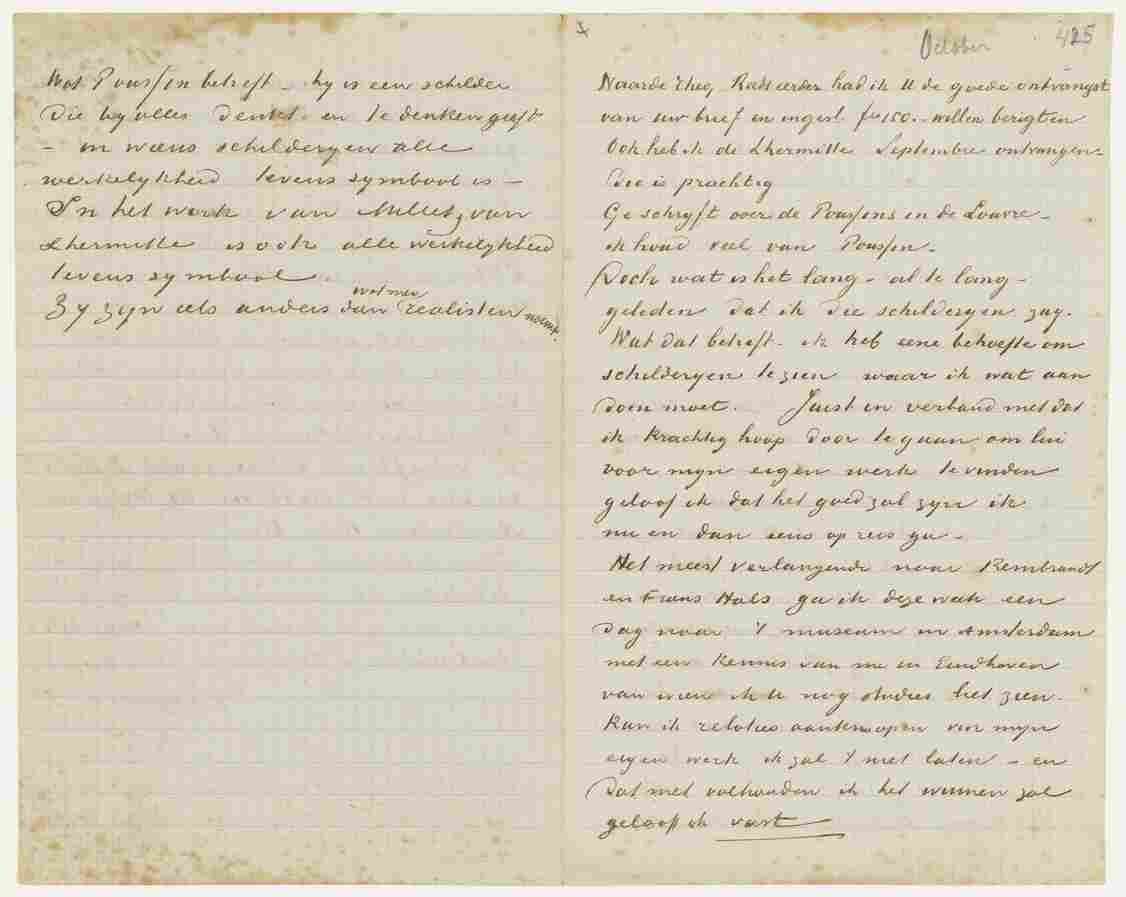 Wat Poussin betreft – hy is een schilder
die by alles denkt en te denken geeft
– in wiens schilderyen alle
werkelykheid tevens symbool is –
In het werk van Millet, van
Lhermitte is ook alle werkelykheid
tevens symbool.
Zy zyn iets anders dan wat men realisten noemt.
October 425
Waarde Theo, Reeds eerder had ik U de goede ontvangst
van uw brief en ingesl. fr. 150.– willen berigten
Ook heb ik de Lhermitte Septembre ontvangen –
die is prachtig
Ge schryft over de Poussins in de Louvre –
ik houd veel van Poussin –
Doch wat is het lang – al te lang –
geleden dat ik die schilderyen zag.
Wat dat betreft – ik heb eene behoefte om
schilderyen te zien waar ik wat aan
doen moet. Juist in verband met dat
ik krachtig hoop door te gaan om lui
voor myn eigen werk te vinden
geloof ik dat het goed zal zyn ik
nu en dan eens op reis ga –
Het meest verlangende naar Rembrandt
en Frans Hals ga ik deze week een
dag naar 't museum in Amsterdam
met een kennis van me in Eindhoven
van wien ik U nog studies liet zien.
Kan ik relaties aanknoopen voor myn
eigen werk ik zal 't niet laten – en
dat met volhouden ik het winnen zal
geloof ik vast